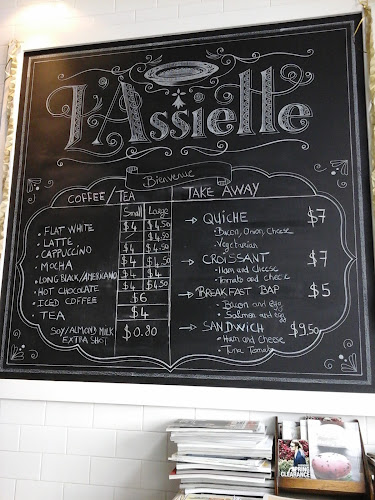 L'Assiette
Bienvenue
COFFEE / TEA
Small Large
• FLAT WHITE $4 $4.50
• LATTE $4 $4.50
• CAPPUCCINO $4 $4.50
• MOCHA $4 $4.50
• LONG BLACK/AMERICANO $4 $4
• HOT CHOCOLATE $4 $4.50
• ICED COFFEE $6
• TEA $4
SOY/ALMOND MILK
EXTRA SHOT $0.80
TAKE AWAY
→ QUICHE $7
• Bacon, Onion, Cheese
• Vegetarian
→ CROISSANT $7
• Ham and cheese
• Tomato and cheese
→ BREAKFAST BAP $5
• Bacon and egg
• Salmon and egg
→ SANDWICH $9.50
• Ham and Cheese
• Tuna Tomato
SPRING
CLEARANCE